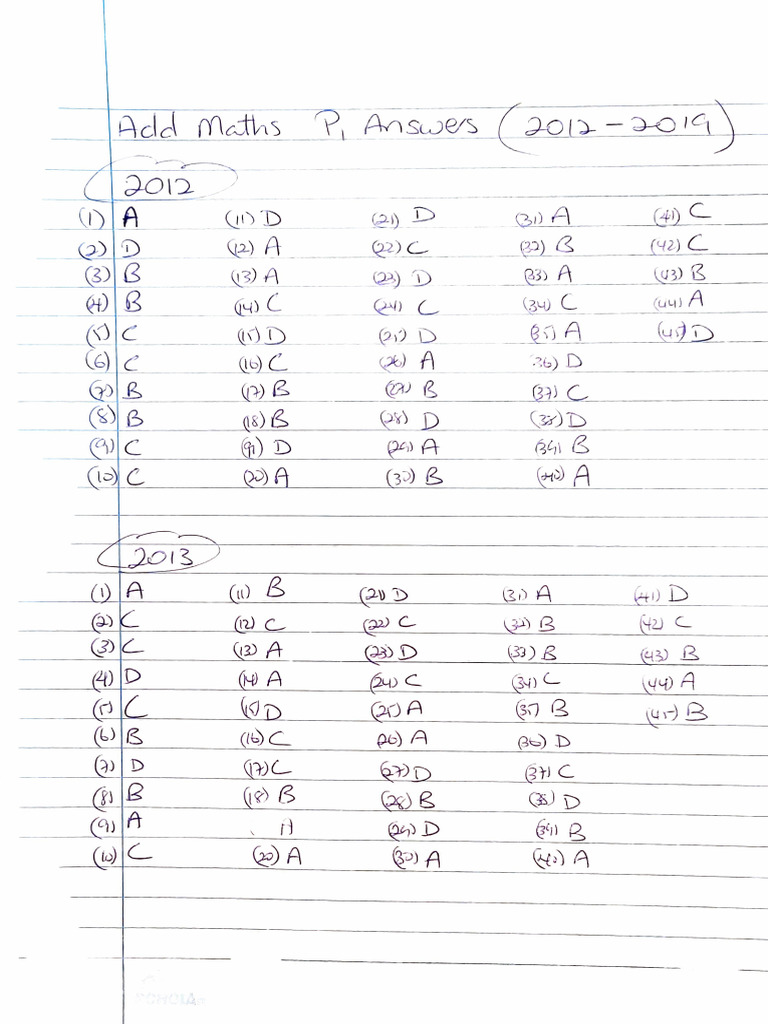 Add Maths P1 Answers (2012-2019)
2012
(1) A (11) D (21) D (31) A (41) C
(2) D (12) A (22) C (32) B (42) C
(3) B (13) A (23) D (33) A (43) B
(4) B (14) C (24) C (34) C (44) A
(5) C (15) D (25) D (35) A (45) D
(6) C (16) C (26) A (36) D
(7) B (17) B (27) B (37) C
(8) B (18) B (28) D (38) D
(9) C (19) D (29) A (39) B
(10) C (20) A (30) B (40) A
2013
(1) A (11) B (21) D (31) A (41) D
(2) C (12) C (22) C (32) B (42) C
(3) C (13) A (23) D (33) B (43) B
(4) D (14) A (24) C (34) C (44) A
(5) C (15) D (25) A (35) B (45) B
(6) B (16) C (26) A (36) D
(7) D (17) C (27) D (37) C
(8) B (18) B (28) B (38) D
(9) A (29) D (39) B
(10) C (20) A (30) A (40) A